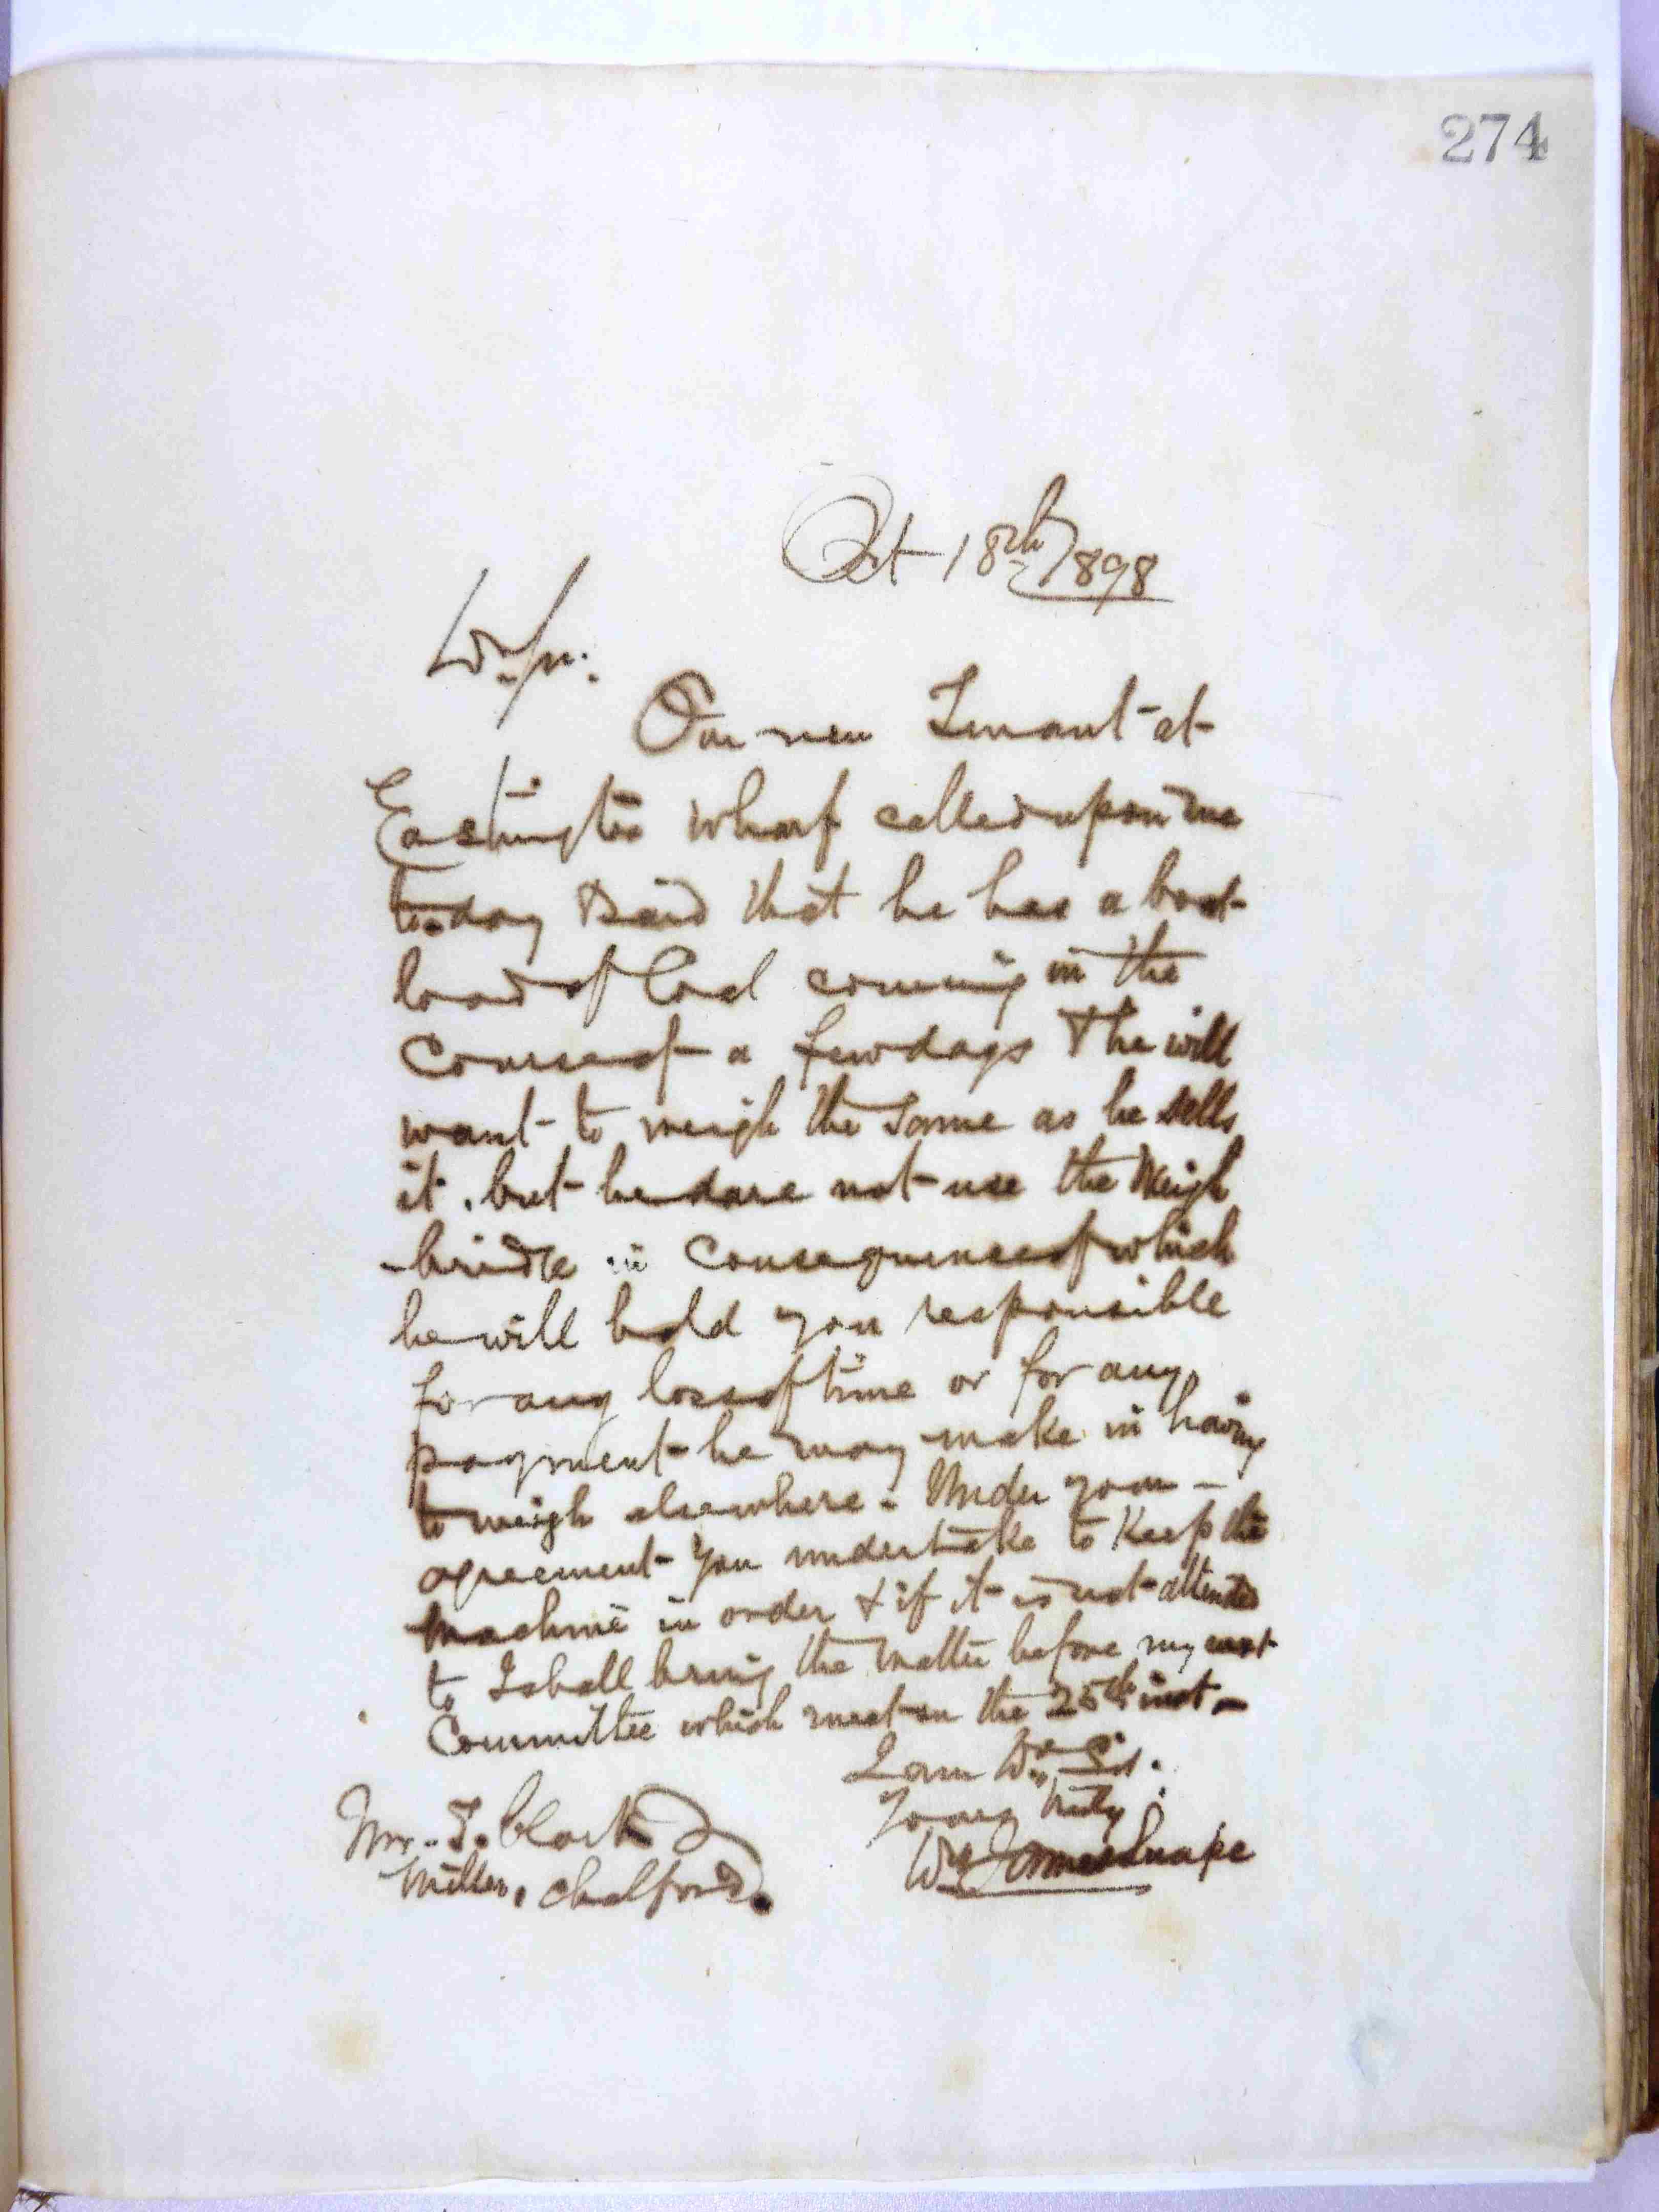 274
Oct 18th/1898
Dr Sir.
Our new Tenant at
Eastington wharf called upon me
to-day & said that he has a boat
load of Coal coming in the
Course of a few days & he will
want to weigh the same as he sells
it. but he dare not use the Weigh
-bridge in Consequence of which
he will hold you responsible
for any loss of time or for any
payment he may make in having
to weigh elsewhere. Under your -
agreement you undertake to Keep the
Machine in order & if it is not attended
to I shall bring the Matter before my next
Committee which meet on the 25th inst -
I am Dr Sir.
Yours truly
Wm J Snape
Mr. T. Clark
Miller, Chalford.